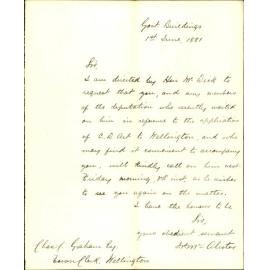 Govt Buildings
1st June, 1881
Sir
I am directed by Hon Mr Dick to
request that you, and any members
of the deputation who recently waited
on him in reference to the application
of C. D. Act to Wellington, and who
may find it convenient to accompany
you, will kindly call on him next
Friday morning, inst, as he wishes
to see you again on the matter.
I have the honour to be
Sir,
your obedient servant
Chas. C. Graham Esq.
Town Clerk, Wellington